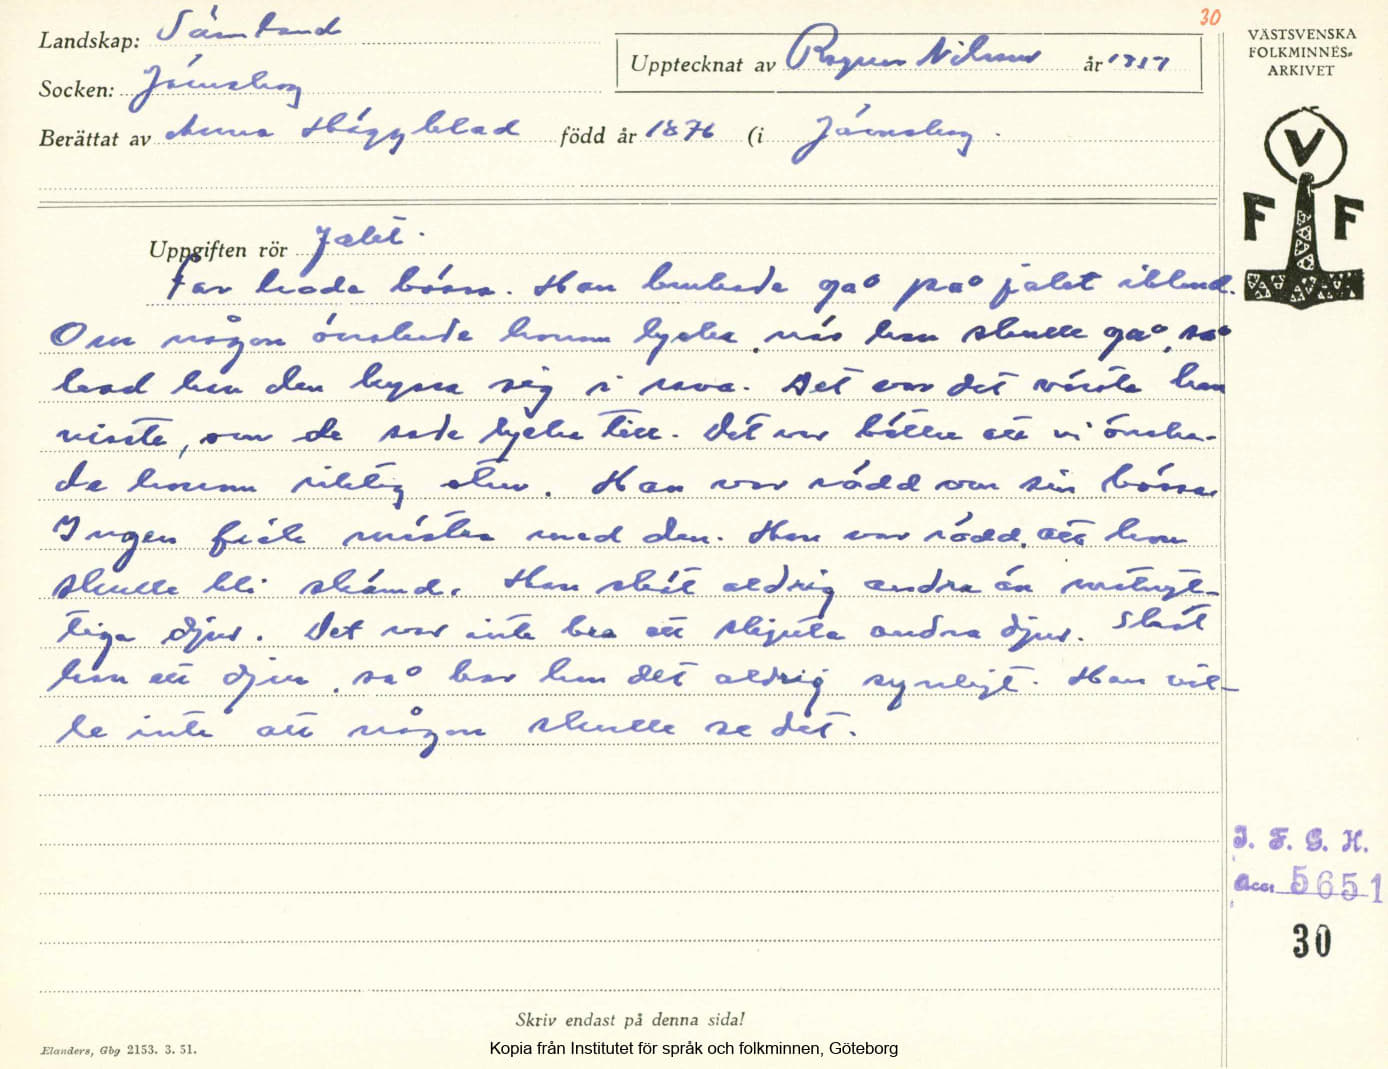 30
Landskap: Värmland
Socken: Jösseborg
Upptecknat av Ragnar Nilsson år
VÄSTSVENSKA
FOLKMINNES-
ARKIVET
Berättat av Anna Häggblad född år 1876 (i
V
F F
Uppgiften rör Jakt.
Far hade bössa. Han brukade gå på jakt ibland.
Om någon önskade honom lycka, när han skulle gå, så
bad han den kyssa sig i röva. Det var det värsta han
visste, om de sade lycka till. Det var bättre att vi önska-
de honom riktig otur. Han var rädd om sin bössa.
Ingen fick mistra med den. Han var rädd, att hon
skulle bli skämd. Han sköt aldrig andra än matnyt-
tiga djur. Det var inte bra att skjuta andra djur. Sköt
han ett djur, så bar han det aldrig synligt. Han vil-
le inte att någon skulle se det.
I. F. G. H.
Acc. 5651
30
Skriv endast på denna sida!
Elanders, Gbg 2153. 3. 51.
Kopia från Institutet för språk och folkminnen, Göteborg